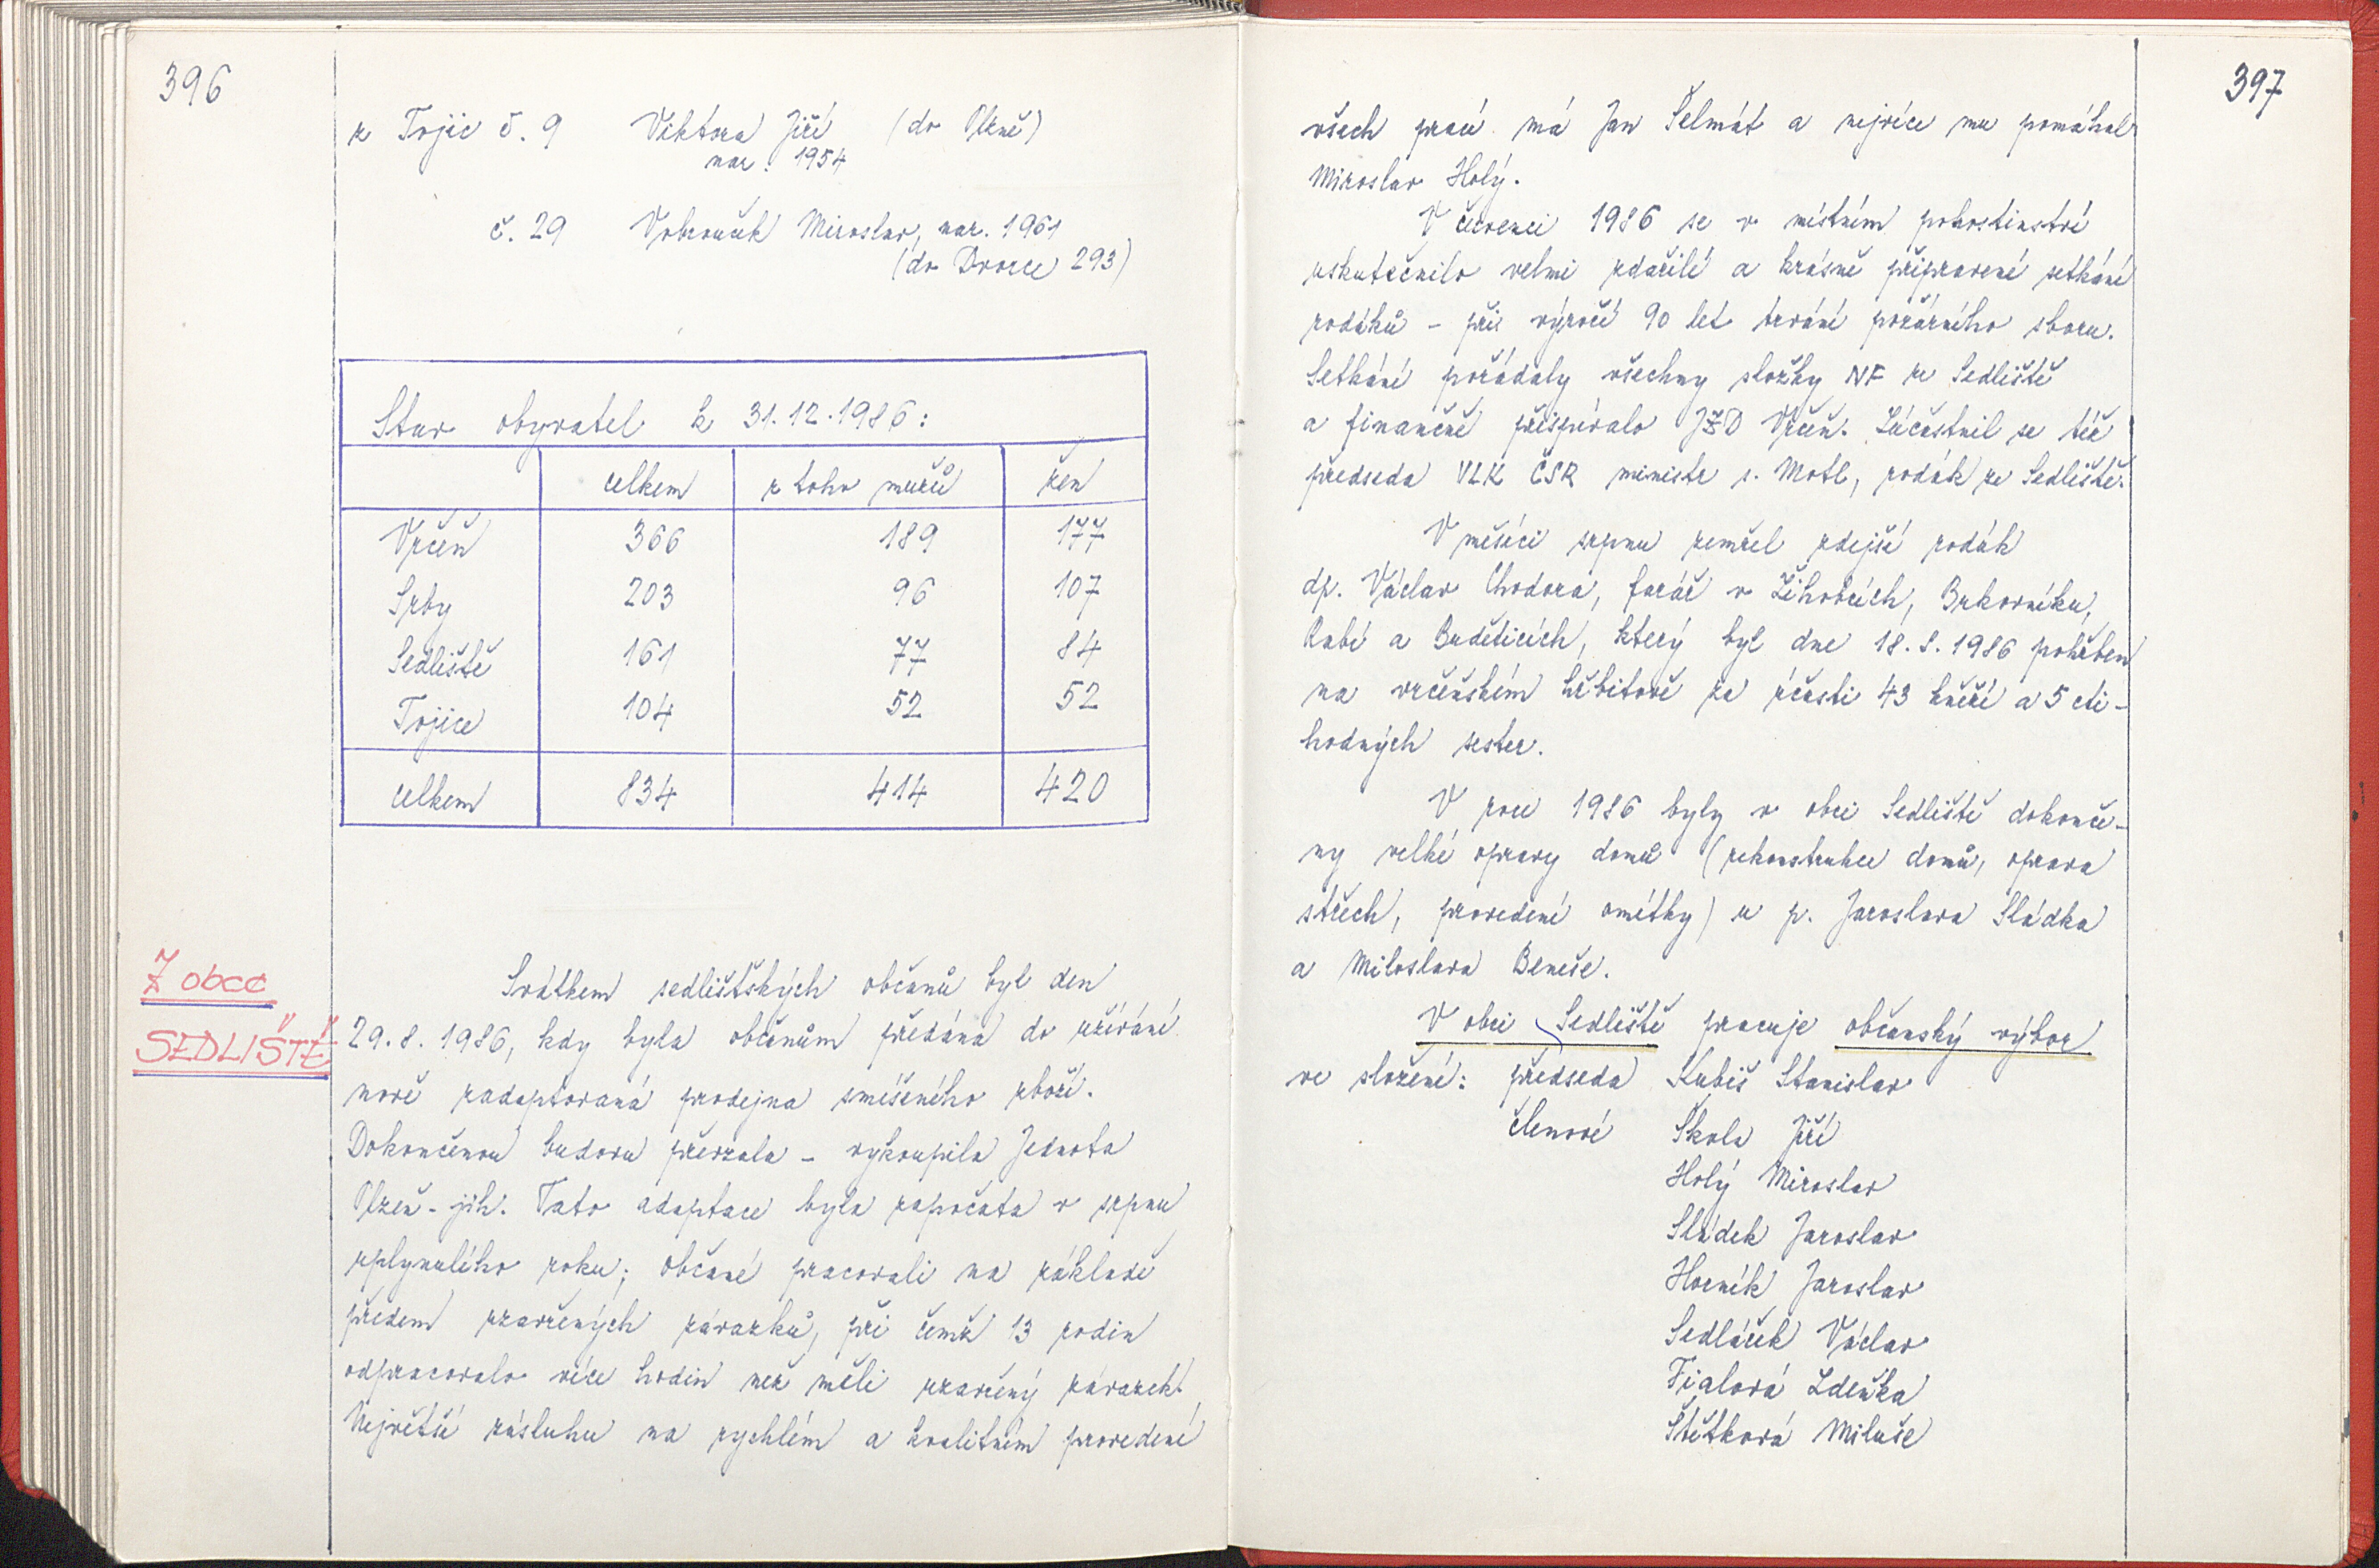 396
z Tojic č. 9 Viktora Jiří (do Plzně)
nar. 1954
č. 29 Vokrouhlík Miroslav, nar. 1961
(do Dvorce 293)
Stav obyvatel k 31.12.1986:
celkem z toho mužů žen
Vrčeň 366 189 177
Srby 203 96 107
Sedliště 161 77 84
Tojice 104 52 52
celkem 834 414 420
Z obce
SEDLIŠTĚ
Svátkem sedlišťských občanů byl den
29.8. 1986, kdy byla občanům předána do užívání
nově zadaptovaná prodejna smíšeného zboží.
Dokončenou budovu převzala - vykoupila Jednota
Plzeň - jih. Tato adaptace byla započata v srpnu
uplynulého roku; občané pracovali na základě
předem uzavřených závazků, při čemž 13 rodin
odpracovalo více hodin než měli uzavřený závazek.
Největší zásluhu na rychlém a kvalitním provedení
397
všech prací má Jan Šelmát a nejvíce mu pomáhal
Miroslav Holý.
V červenci 1986 se v místním pohostinství
uskutečnilo velmi zdařilé a krásně připravené setkání
rodáků - při výročí 90 let trvání požárního sboru.
Setkání pořádaly všechny složky NF ze Sedliště
a finančně přispívalo JZD Vrčeň. Zúčastnil se též
předseda VLK ČSR ministr s. Motl, rodák ze Sedliště.
V měsíci srpnu zemřel zdejší rodák
dp. Václav Chodora, farář v Žihobcích, Bukovníku,
Rabí a Buděticích, který byl dne 18.8.1986 pohřben
na vrčeňském hřbitově za účasti 43 kněží a 5 cti-
hodných sester.
V roce 1986 byly v obci Sedliště dokonče-
ny velké opravy domů (rekonstrukce domů, oprava
střech, provedení omítky) u p. Jaroslava Sládka
a Miloslava Beneše.
V obci Sedliště pracuje občanský výbor
ve složení: předseda Kubiš Stanislav
členové Škola Jiří
Holý Miroslav
Sládek Jaroslav
Horník Jaroslav
Sedláček Václav
Fialová Zdeňka
Štětková Miluše